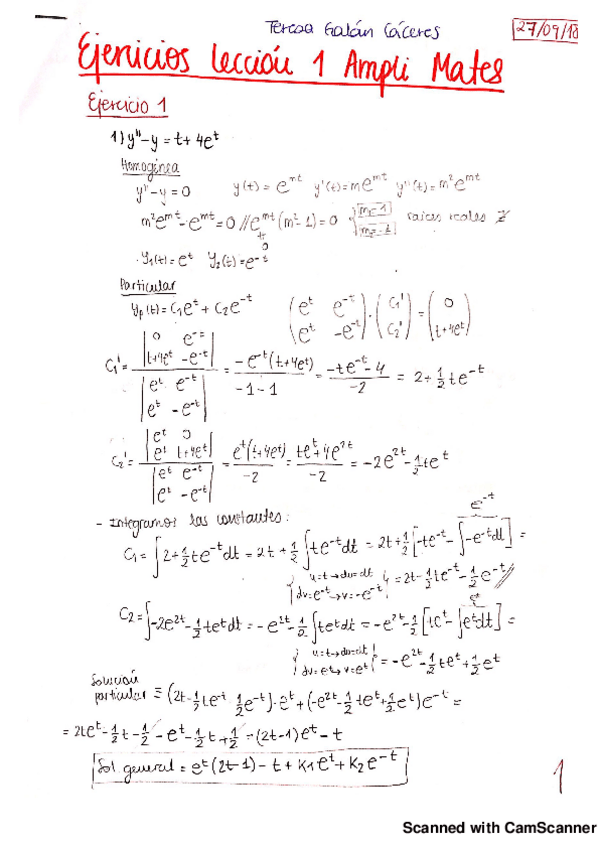 Teresa Galán Cáceres
27/09/18
Ejercicios lección 1 Ampli Mates
Ejercicio 1
1) y'' - y = t + 4e^t
Homogénea
y'' - y = 0 y(t) = e^mt y'(t) = me^mt y''(t) = m²e^mt
m²e^mt - e^mt = 0 // e^mt (m² - 1) = 0 { m=1 m=-1 raices reales ≠
0
· y₁(t) = e^t y₂(t) = e^-t
Particular
yp(t) = C₁e^t + C₂e^-t (e^t e^-t / e^t -e^-t) · (C₁' / C₂') = (0 / t+4e^t)
C₁' = |0 e^-t / t+4e^t -e^-t| / |e^t e^-t / e^t -e^-t| = -e^-t(t+4e^t) / -1-1 = -te^-t-4 / -2 = 2 + 1/2 te^-t
C₂' = |e^t 0 / e^t t+4e^t| / |e^t e^-t / e^t -e^-t| = e^t(t+4e^t) / -2 = te^t+4e^2t / -2 = -2e^2t - 1/2 te^t
- Integramos las constantes:
e^-t
C₁ = ∫2 + 1/2 te^-t dt = 2t + 1/2 ∫te^-t dt = 2t + 1/2 [-te^-t - ∫-e^-t dt] =
u=t → du=dt
dv=e^-t → v=-e^-t
= 2t - 1/2 te^-t - 1/2 e^-t //
e^t
C₂ = ∫-2e^2t - 1/2 te^t dt = -e^2t - 1/2 ∫te^t dt = -e^2t - 1/2 [te^t - ∫e^t dt] =
u=t → du=dt
dv=e^t → v=e^t
= -e^2t - 1/2 te^t + 1/2 e^t
Solución
particular = (2t - 1/2 te^-t - 1/2 e^-t) · e^t + (-e^2t - 1/2 te^t + 1/2 e^t) e^-t =
= 2te^t - 1/2 t - 1/2 - e^t - 1/2 t + 1/2 = (2t-1)e^t - t
Sol. general = e^t (2t-1) - t + K₁e^t + K₂e^-t
1
Scanned with CamScanner